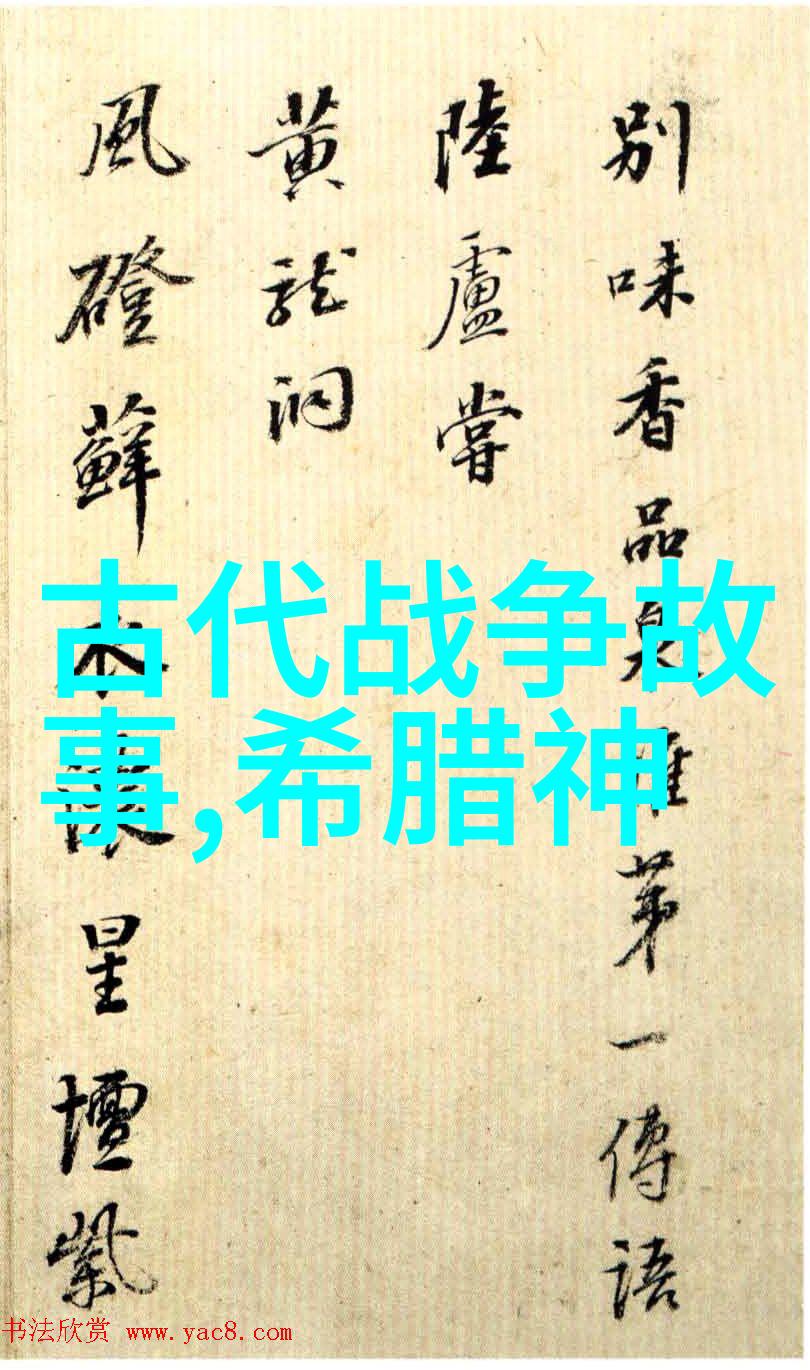 别味香品泉苐一傳語
陸盧嘗
黄龍洞
風磴蘚星壇紫
古代战争故
事,希腊神
书法欣赏 www.yac8.com